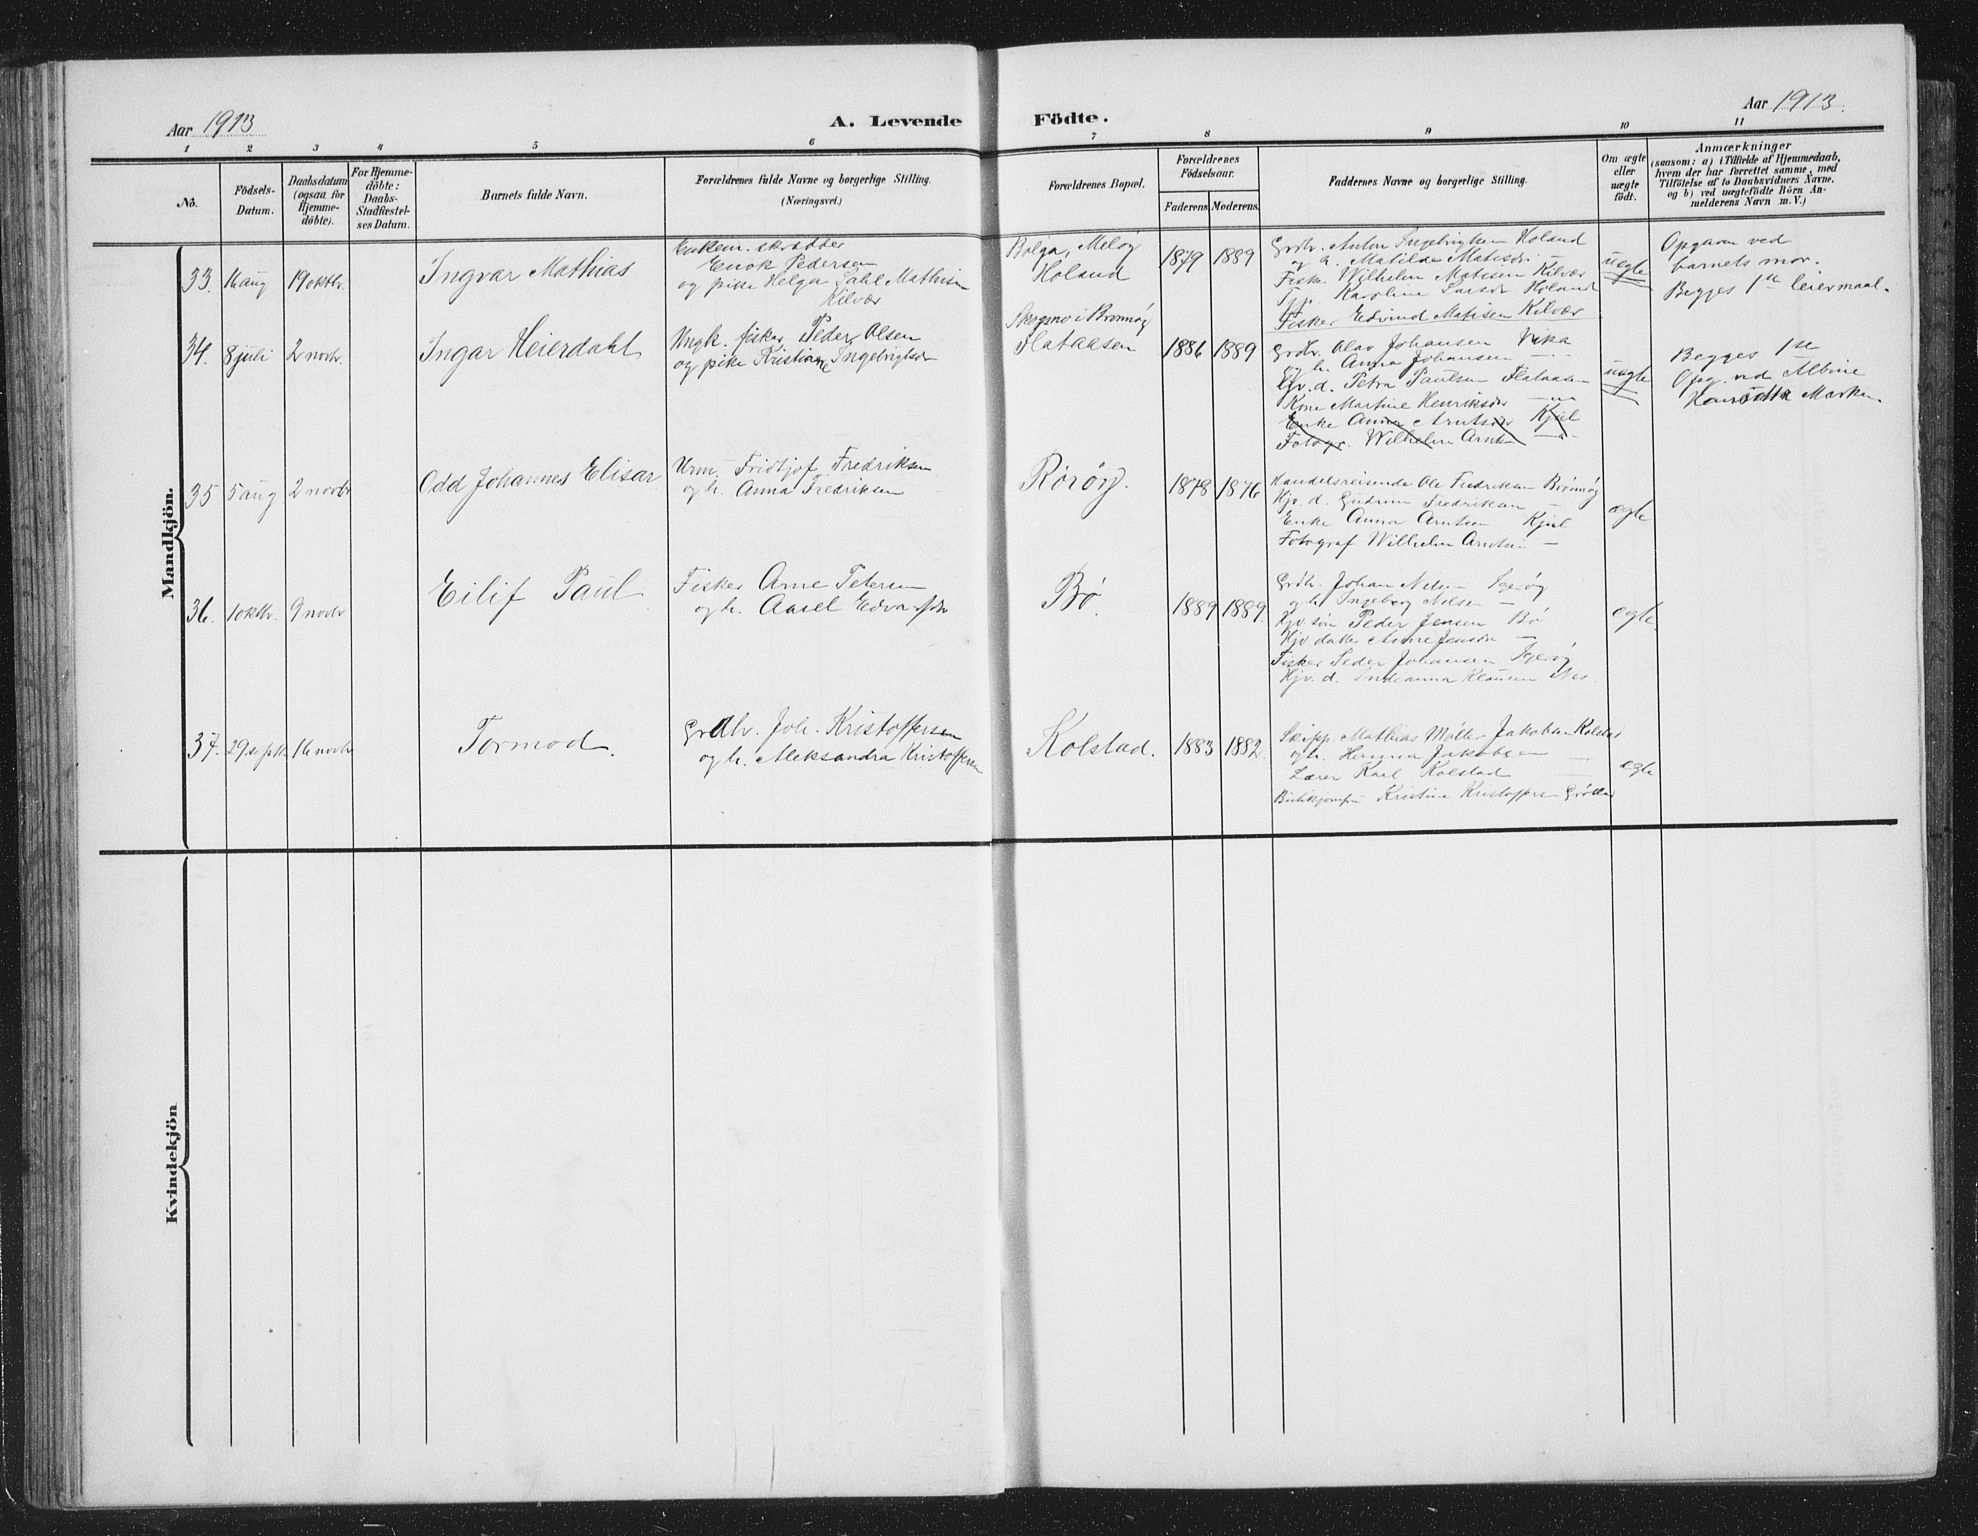 Aar 1913
A. Levende Födte.
Aar 1913.
1 2 3 4 5 6 7 8 9 10 11
No.
Födsels-
Datum.
Daabsdatum
(ogsaa for
Hjemme-
döbte).
For Hjemme-
döbte:
Daabs-
Stadfæstel-
ses Datum.
Barnets fulde Navn.
Forældrenes fulde Navne og borgerlige Stilling.
(Næringsvei.)
Forældrenes Bopæl.
Forældrenes
Födselsaar.
Faderens. Moderens.
Faddernes Navne og borgerlige Stilling.
Om ægte
eller
uægte
födt.
Anmærkninger
(saasom: a) i Tilfælde af Hjemmedaab,
hvem der har forrettet samme, med
Tilföielse af to Daabsvidners Navne.
og b) ved uægtefödte Börn An-
melderens Navn m. V.)
Mandkjön.
33. 16 aug 19 oktbr.
Ingvar Mathias
Enkem. skrædder
Enok Pedersen
og pike Helga Dahl Mathisen
Kilvær
Bolga, Meløy
Holand
1879 1889
Grdbr. Anton Ingebrigtsen Holand
og h. Matilde Matisdr. —
Fisk. Wilhelm Matisen Kilvær
Tjp. Karoline Larsdr Holand
Fisker Edvind Matisen Kilvær
uegte
Opgaven ved
barnets mor.
Begges 1ste leiermaal.
34. 8 juli 2 novbr.
Ingar Heierdahl
Ungk. fisker Peder Olsen
og pike Kristiane Ingebrigtsdr
Skogmo i Brønnøy
Flataasen
1886 1889
Grdbr. Olav Johansen Vika
og h. Anna Johansen —
Gv. d. Petra Paulsen Flataasen
Kone Martine Henriksdr —
Enke Anna Arntsen Kjul
Fotogr. Wilhelm Arntsen —
uegte
Begges 1ste
Opg. ved Albine
35 5 aug 2 novbr
Odd Johannes Elisar
Urm. Fridtjof Fredriksen
og h. Anna Fredriksen
Rørøy.
1878 1876
Handelsreisende Ole Fredriksen Brønnøy
Hjv. d. Gudrun Fredriksen —
Enke Anna Arntsen Kjul
Fotograf Wilhelm Arntsen —
ægte
36. 1 oktbr. 9 novbr
Eilif Paul
Fisker Arne Petersen
og h. Aasel Edvardsdr
Bø.
1889 1889.
Grdbr. Johan Nilsen Igerøy
og h. Ingeborg Nilsen —
Gv. søn Peder Jensen Bø
Hjv. datter Anne Jensdr —
Fisker Peder Johansen Igerøy
Hjv. d. Indianna Klausen Nes.
egte.
37. 29 septbr. 16 novbr
Tormod.
Grdbr. Joh. Kristoffersen
og h. Aleksandra Kristoffersen
Kolstad.
1883 1882.
Skipp. Mathias Møller Jakobsen Kolstad
og h. Hanna Jakobsen —
Lærer Karl Kolstad —
Butikjomfru Kristine Kristoffersen
egte
Kvindekjön